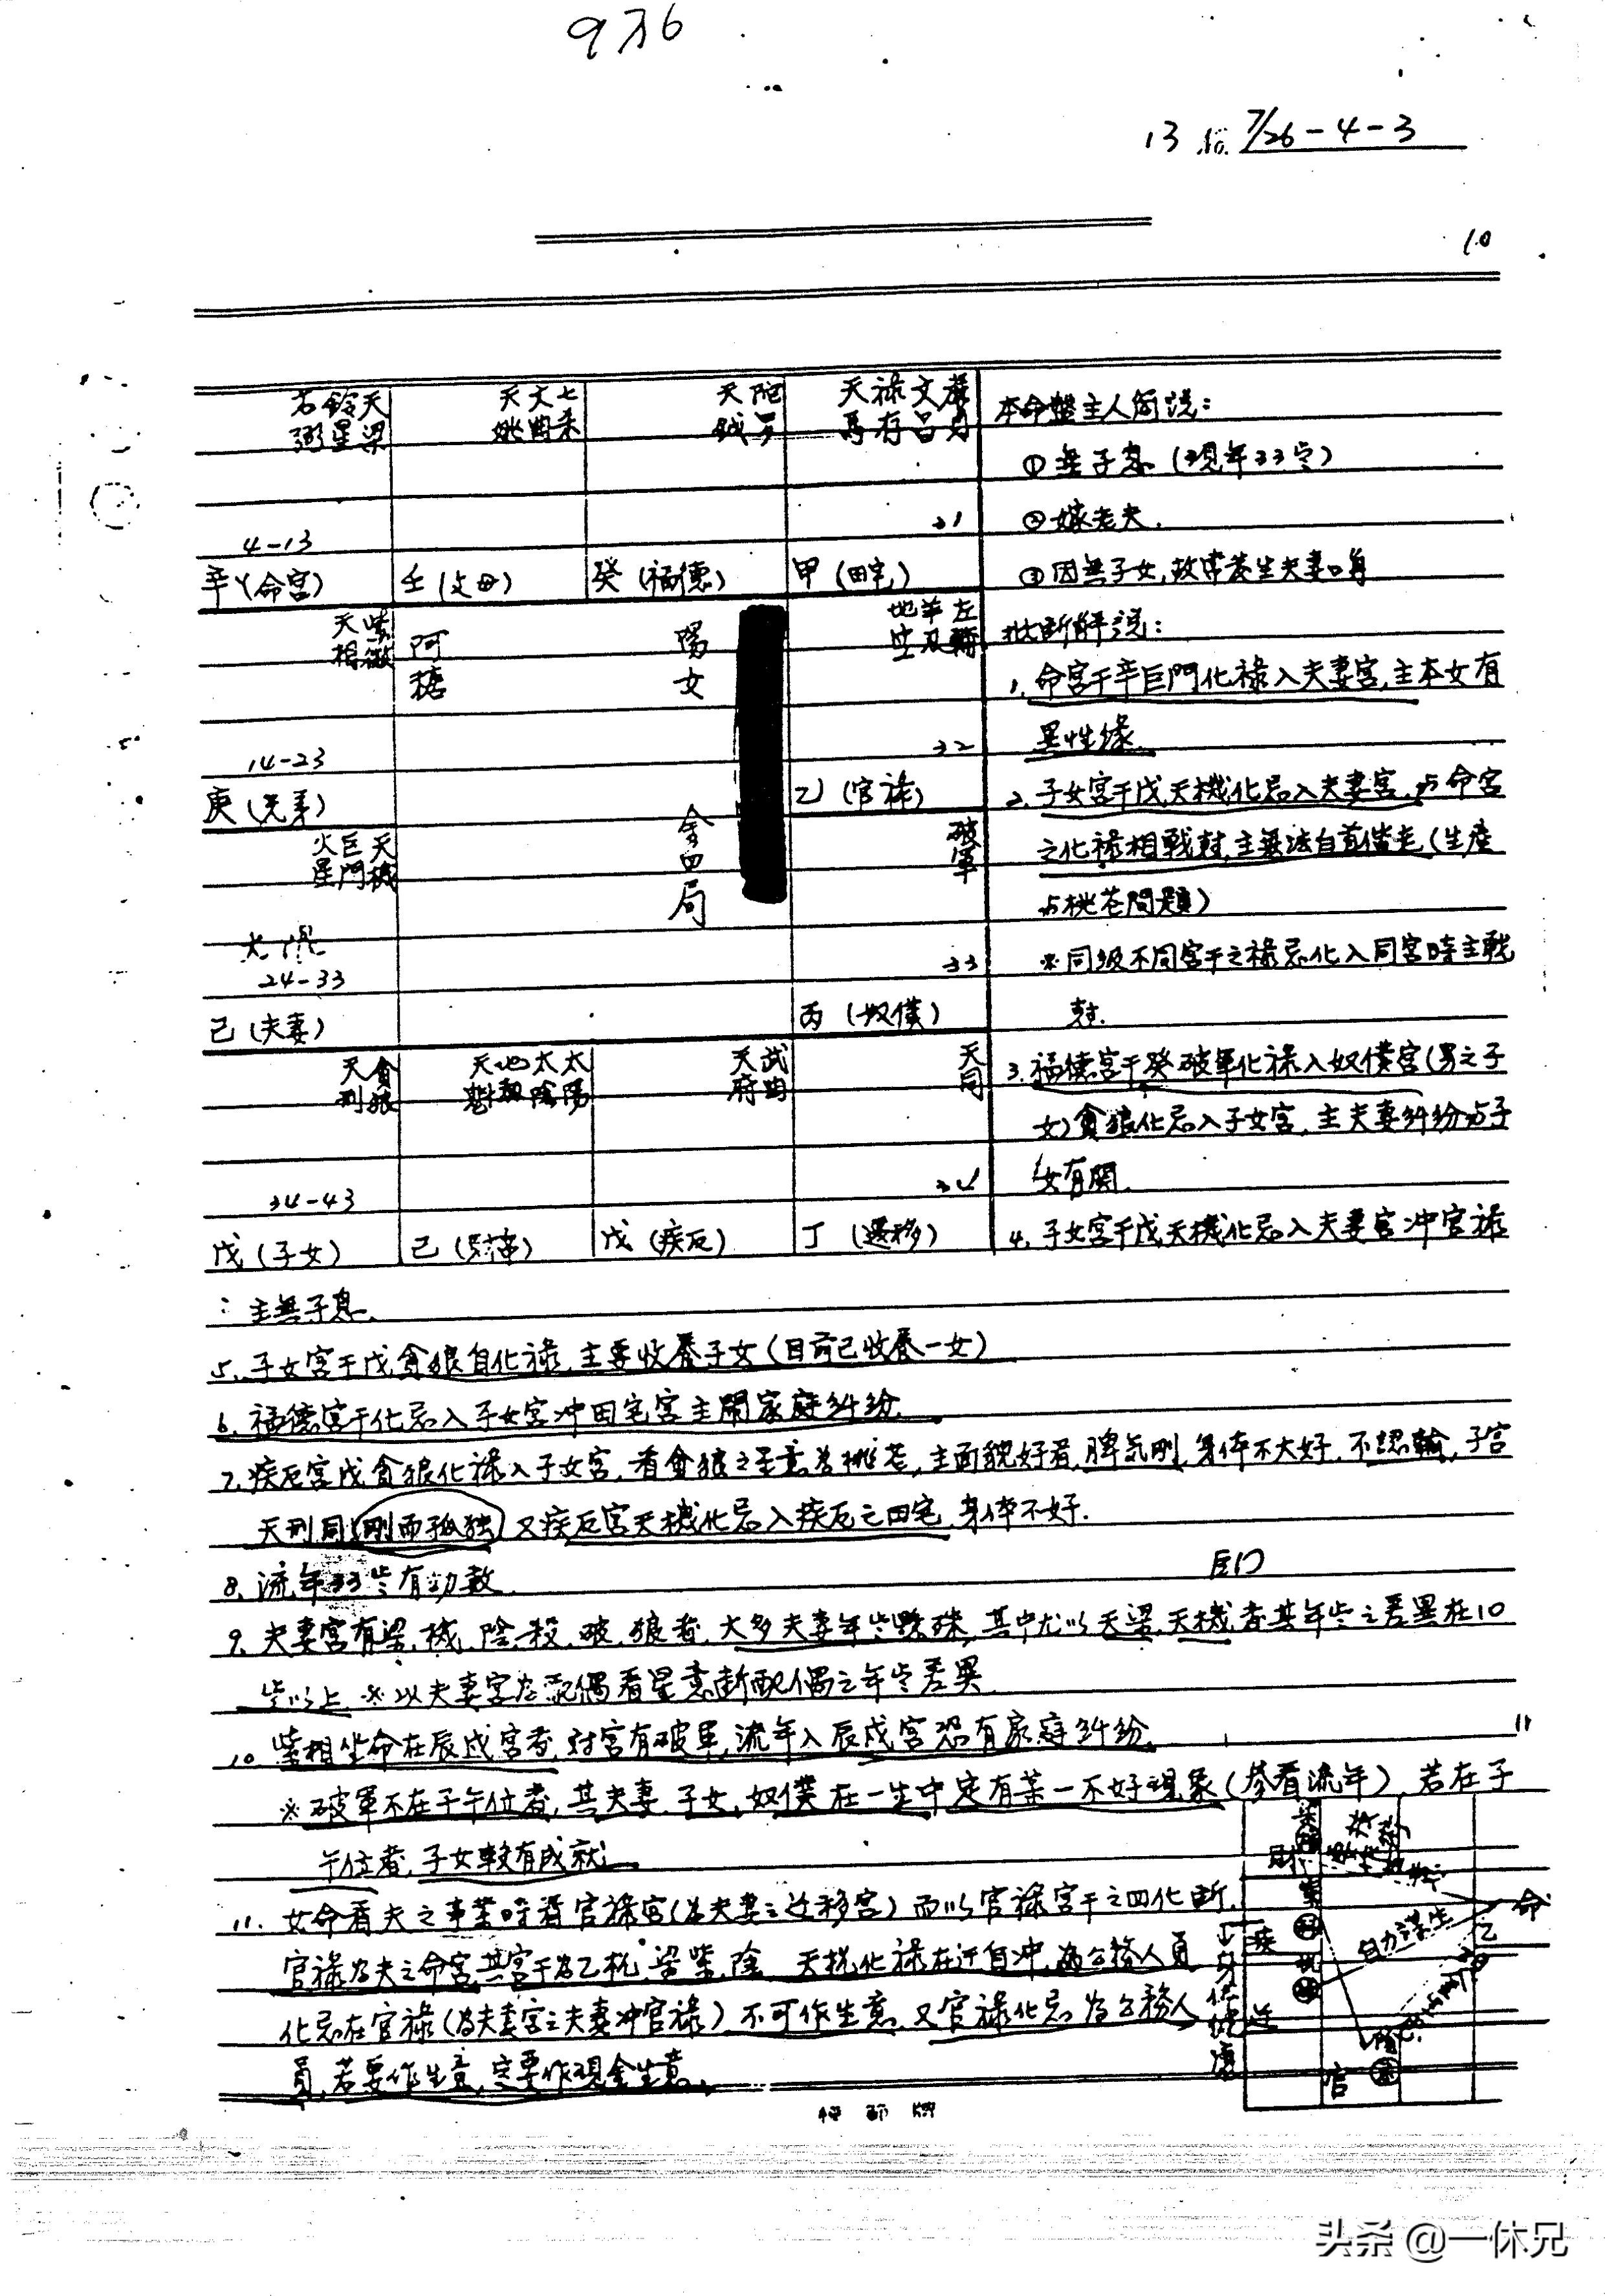 936
13 7/26-4-3
10
右鈴天
弼星梁
4-13
辛(命宮)
天文七
姚曲杀
壬(父母)
天陀
鉞羅
癸(福德)
天禄文廉
馬存昌貞
31
甲(田宅)
本命盤主人簡説:
①無子息(現年33岁)
②嫁老夫.
③因無子女,故常發生夫妻口角
天紫
相微
14-23
庚(兄弟)
阿
糖
陽
女
金四局
地羊左
空刃輔
32
乙(官祿)
批斷解説:
1.命宮干辛巨門化祿入夫妻宮,主本女有
異性缘.
2.子女宮干戊天機化忌入夫妻宮,与命宮
之化祿相戰尅,主無法白首偕老(生產
与桃花問題)
火巨天
星門機
大限
24-33
己(夫妻)
破軍
33
丙(奴僕)
※同級不同宮干之祿忌化入同宮時主戰
尅.
天貪
刑狼
34-43
戊(子女)
天地太太
魁劫陰陽
己(財帛)
天武
府曲
戊(疾厄)
天同
34
丁(遷移)
3.福德宮干癸破軍化祿入奴僕宮(男之子
女)貪狼化忌入子女宮,主夫妻糾纷与子
女有関.
4.子女宮干戊天機化忌入夫妻宮冲官祿
:主無子息.
5.子女宮干戊貪狼自化祿,主要收養子女(目前已收養一女)
6.福德宮干化忌入子女宮冲田宅宮主鬧家庭糾纷.
7.疾厄宮戊貪狼化祿入子女宮,看貪狼之星意為桃花,主面貌好看,脾氣剛,身体不大好.不認輸,子宮
天刑同(剛而孤独)又疾厄宮天機化忌入疾厄之田宅,身体不好.
8.流年33岁有劫數.
巨門
9.夫妻宮有梁.機.陰.殺.破.狼者.大多夫妻年岁懸殊,其中尤以天梁.天機者其年岁之差異在10
岁以上.※以夫妻宮為配偶看星意断配偶之年岁差異.
10.紫相坐命在辰戌宮者,対宮有破軍,流年入辰戌宮恐有家庭糾纷.
11
※破軍不在子午位者,其夫妻.子女,奴僕在一生中定有某一不好現象(參看流年),若在子
午位者,子女較有成就.
11.女命看夫之事業時看官祿宮(為夫妻之迁移宮)而以官祿宮干之四化断.
官祿為夫之命宮,其宮干為乙机.梁紫.陰 天機化祿在迁自冲,為公務人員
化忌在官祿(為夫妻宮之夫妻冲官祿)不可作生意.又官祿化忌為公務人
員,若要作生意,定要作現金生意.
疾
迁
官
命
乙
自力謀生
头条 @一休兄